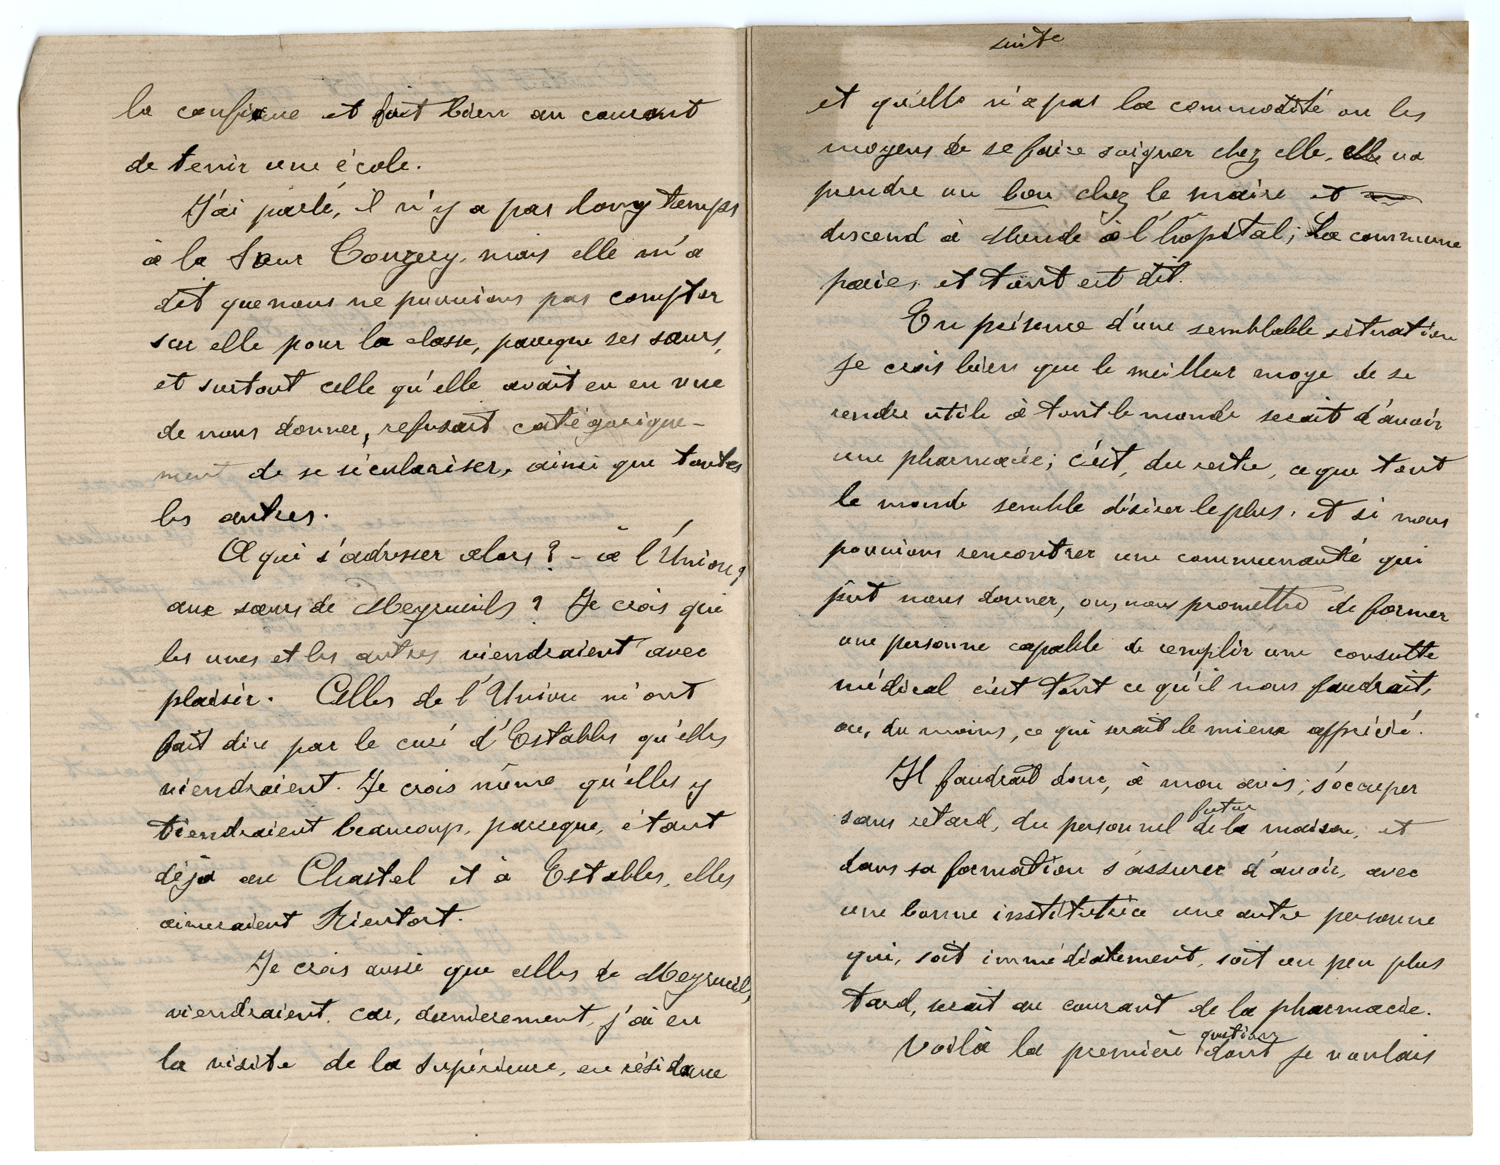 la confiance et fait bien au courant
de tenir une école.
J'ai parlé, il n'y a pas longtemps
à la Sœur mais elle m'a
dit que nous ne pouvions pas compter
sur elle pour la classe, parceque ses sœurs,
et surtout celle qu'elle avait eu en vue
de nous donner, refusait catégorique-
ment de se séculariser, ainsi que toutes
les autres.
A qui s'adresser alors ? - à l'Union ?
aux sœurs de Meyrueils ? Je crois que
les unes et les autres viendraient avec
plaisir. Celles de l'Union m'ont
fait dire par le curé d'Estables qu'elles
viendraient. Je crois même qu'elles y
tiendraient beaucoup, parceque, étant
déjà au Chastel et à Estables, elles
aimeraient Rieutort.
Je crois aussi que celles de Meyrueils,
viendraient, car, dernièrement, j'ai eu
la visite de la Supérieure, en résidence
suite
et qu'elle n'a pas la commodité ou les
moyens de se faire soigner chez elle, elle va
prendre un bon chez le maire et
descend à Mende à l'hôpital; La commune
paie, et tout est dit.
En présence d'une semblable situation
je crois bien que le meilleur moye de se
rendre utile à tout le monde serait d'avoir
une pharmacie; c'est, du reste, ce que tout
le monde semble désirer le plus, et si nous
pouvions rencontrer une communauté qui
pût nous donner, ou, nous promettre de former
une personne capable de remplir une consulte
médical c'est tout ce qu'il nous faudrait,
ou, du moins, ce qui serait le mieux apprécié.
Il faudrait donc, à mon avis, s'occuper
sans retard, du personnel futur de la maison, et
dans sa formation s'assurer d'avoir, avec
une bonne institutrice une autre personne
qui, soit immédiatement, soit un peu plus
tard, serait au courant de la pharmacie.
Voilà la première question dont je voulais